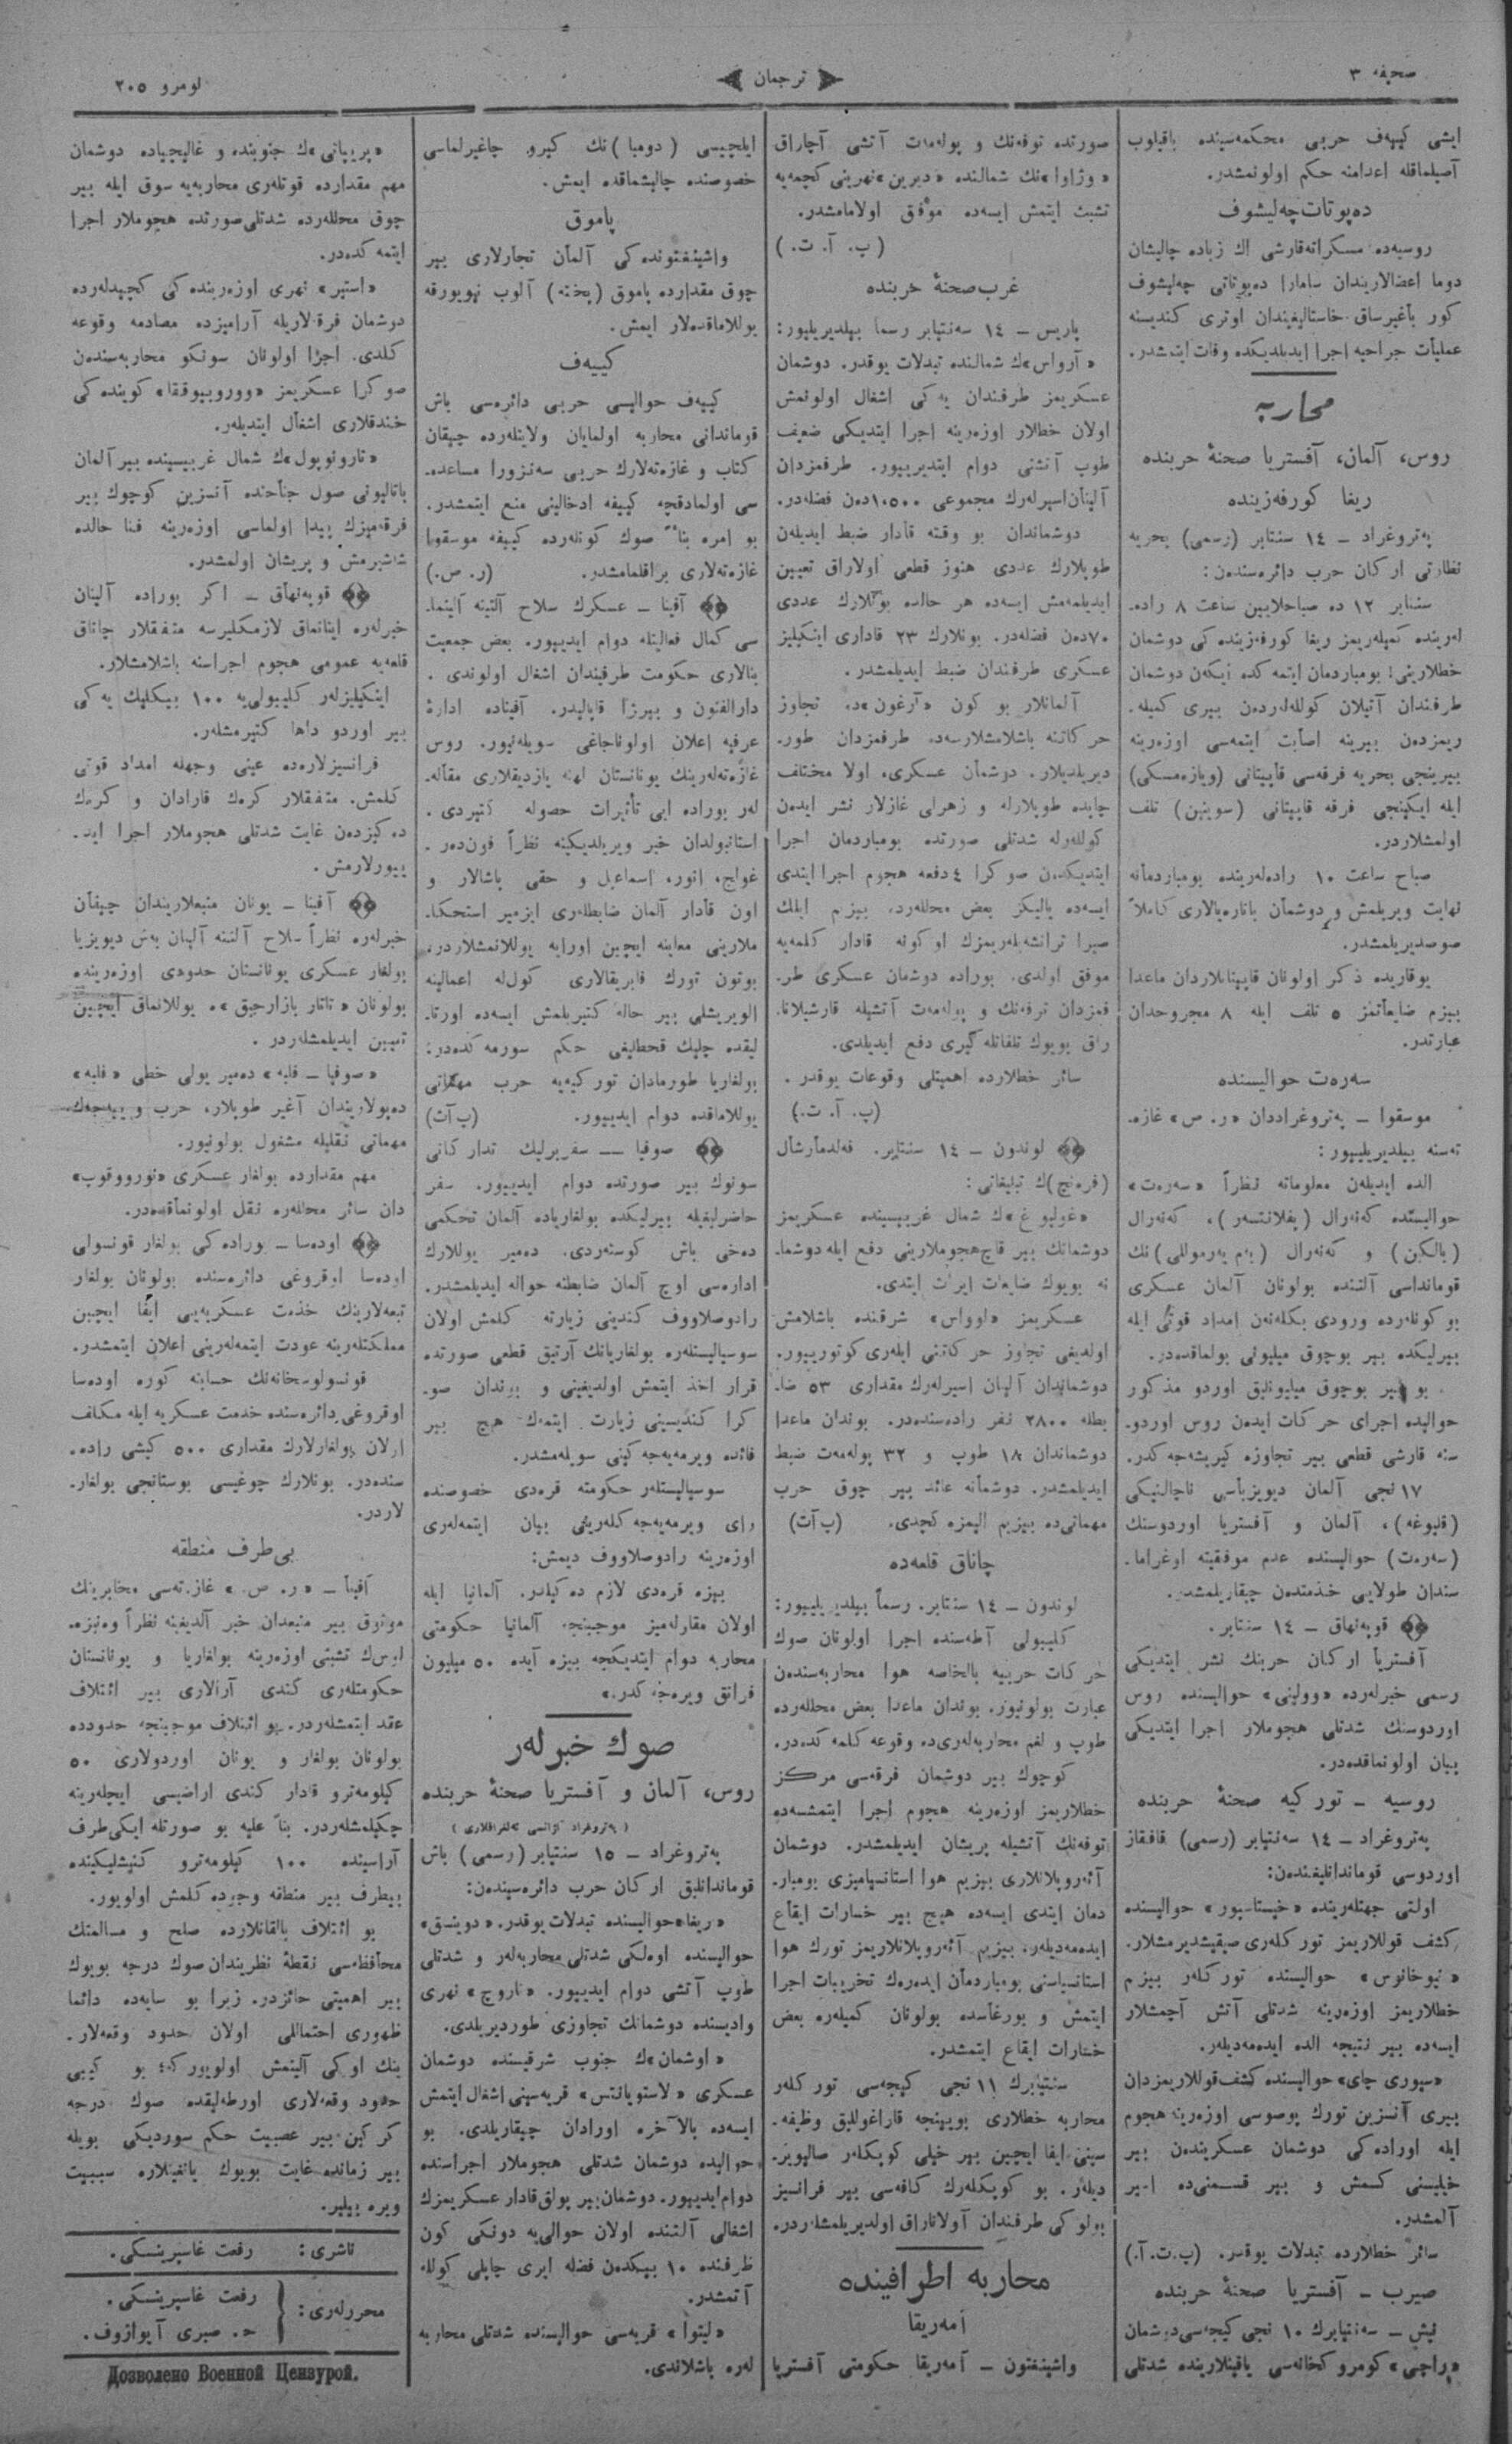 صحیفه ۳
ترجمان
نومرو ۲۰۵
ایشی کییەف حربی محکمه‌سینده باقیلوب
آصیلماقله اعدامنه حکم اولونمشدر.
ده‌پوتات چه‌لیشوف
روسیه‌ده مسکراته قارشی اك زیاده چالیشان
دوما اعضالاریندان سامارا ده‌پوتاتی چه‌لیشوف
كور باغیرساق خاستالیغیندان اوتری كندیسنه
عملیات جراحیه اجرا ایدیلدیكده وفات ایتمشدر.
محاربه
روس، آلمان، آفستریا صحنهٔ حربنده
ریغا كورفه‌زینده
په‌تروغراد – ١٤ سنتابر (رسمی) بحریه
نظارتی اركان حرب دائره‌سندن:
سنتابر ١٢ ده صباحلایین ساعت ٨ راده‌
له‌رینده كمیله‌ریمز ریغا كورفه‌زینده كی دوشمان
خطلارینی بومباردمان ایتمه كده ایكه‌ن دوشمان
طرفندان آتیلان كولله‌له‌ردن بیری كمیله‌
ریمزدن بیرینه اصابت ایتمه‌سی اوزه‌رینه
بیرینجی بحریه فرقه‌سی قاپیتانی (ویازه‌مسكی)
ایله ایكینجی فرقه قاپیتانی (سوینین) تلف
اولمشلاردر.
صباح ساعت ١٠ راده‌له‌رینده بومباردمانه
نهایت ویریلمش و دوشمان باتاره‌یالاری كاملاً
صوصدیریلمشدر.
یوقاریده ذكر اولونان قاپیتانلاردان ماعدا
بیزم ضایعاتمز ٥ تلف ایله ٨ مجروحدان
عبارتدر.
سه‌ره‌ت حوالیسنده
موسقوا – په‌تروغراددان «ر. ص» غازه‌
ته‌سنه بیلدیریلییور:
الده ایدیله‌ن معلوماته نظراً «سه‌ره‌ت»
حوالیسنده كه‌نه‌رال (پفلانتسه‌ر)، كه‌نه‌رال
قومانداسی آلتنده بولونان آلمان عسكری
بو كونله‌رده ورودی بكله‌نه‌ن امداد قوتی ایله
بیرلیكده بیر بوچوق میلیونی بولماقده‌در.
بو بیر بوچوق میلیونلیق اوردو مذكور
حوالیده اجرای حركات ایده‌ن روس اوردو‌
سنه قارشی قطعی بیر تجاوزه كیریشه‌جه كدر.
١٧ نجی آلمان دیویزیاسی ناچالنیكی
(قلیوغه)، آلمان و آفستریا اوردوسنك
(سه‌ره‌ت) حوالیسنده عدم موفقیته اوغراما‌
سندان طولایی خدمتدن چیقاریلمشدر.
قوپه‌نهاق – ١٤ سنتابر.
آفستریا اركان حربنك نشر ایتدیكی
رسمی خبرله‌رده «وولینی» حوالیسنده روس
اوردوسنك شدتلی هجوملار اجرا ایتدیكی
بیان اولونماقده‌در.
روسیه – توركیه صحنهٔ حربنده
په‌تروغراد – ١٤ سه‌نتیابر (رسمی) قافقاز
اوردوسی قوماندانلیغندن:
اولتی جهتله‌رینده «خیستاسور» حوالیسنده
كشف قوللاریمز توركله‌ری صیقیشدیرمشلار.
«نیوخانوس» حوالیسنده توركله‌ر بیزم
خطلاریمز اوزه‌رینه شدتلی آتش آچمشلار
ایسه‌ده بیر نتیجه الده ایده‌مه‌دیله‌ر.
«سیوری چای» حوالیسنده كشف قوللاریمزدان
بیری آنسزین تورك پوصوسی اوزه‌رینه هجوم
ایله اوراده كی دوشمان عسكریندن بیر
خیلیسنی كسمش و بیر قسمنی ده اسیر
آلمشدر.
سائر خطلارده تبدلات یوقدر. (پ. ت. آ.)
صیرب – آفستریا صحنهٔ حربنده
نیش – سه‌نتیابرك ١٠ نجی كیجه‌سی دوشمان
«راچی» كومروكخانه‌سی یاقینلارینده شدتلی
صورتده توفه‌نك و پوله‌مه‌ت آتشی آچاراق
«وژاوا»نك شمالنده «دبرین» نهرینی كچمه‌یه
تشبث ایتمش ایسه‌ده موفق اولامامشدر.
(پ. آ. ت.)
غرب صحنهٔ حربنده
پاریس – ١٤ سه‌نتیابر رسماً بیلدیریلییور:
«آرواس»ك شمالنده تبدلات یوقدر. دوشمان
عسكریمز طرفندان یه‌كی اشغال اولونمش
اولان خطلار اوزه‌رینه اجرا ایتدیكی ضعیف
طوپ آتشنی دوام ایتدیرییور. طرفمزدان
آلینان اسیرله‌رك مجموعی ١٠٥٠٠ده‌ن فضله‌در.
دوشماندان بو وقته قادار ضبط ایدیله‌ن
طوپلارك عددی هنوز قطعی اولاراق تعیین
ایدیلمه‌مش ایسه‌ده هر حالده بونلارك عددی
٧٠ده‌ن فضله‌در. بونلارك ٢٣ قاداری اینكیلیز
عسكری طرفندان ضبط ایدیلمشدر.
آلمانلار بو كون «آرغون»ده تجاوز
حركاتنه باشلامشلارسه‌ده طرفمزدان طور‌
دیریلدیلار. دوشمان عسكری، اولا مختلف
چاپده طوپلارله و زهرلی غازلار نشر ایده‌ن
كولله‌رله شدتلی صورتده بومباردمان اجرا
ایتدیكدن صوكرا ٤ دفعه هجوم اجرا ایتدی
ایسه‌ده یالیكز بعض محللەرده بیزم ایلك
صیرا ترانشه‌یله‌ریمزك اوكونه قادار كلمه‌یه
موفق اولدی. بوراده دوشمان عسكری طر‌
فمزدان توفه‌نك و پوله‌مه‌ت آتشیله قارشیلانا‌
راق بویوك تلفاتله گیری دفع ایدیلدی.
سائر خطلارده اهمیتلی وقوعات یوقدر.
(پ. آ. ت.)
لوندون – ١٤ سنتابر. فه‌لدمارشال
(فره‌نچ)ك تبلیغاتی:
«غولیوغ»ك شمال غربیسینده عسكریمز
دوشمانك بیر قاچ هجوملارینی دفع ایله دوشما‌
نه بویوك ضایعات ایراث ایتدی.
عسكریمز «لوواس» شرقنده باشلامش
اولدیغی تجاوز حركاتنی ایله‌ری كوتورییور.
دوشماندان آلینان اسیرله‌رك مقداری ٥٣ ضا‌
بطله ٢٨٠٠ نفر راده‌سنده‌در. بوندان ماعدا
دوشماندان ١٨ طوپ و ٣٢ پوله‌مه‌ت ضبط
ایدیلمشدر. دوشمانه عائد بیر چوق حرب
مهماتی‌ده بیزیم الیمزه كچدی. (پ آ ت)
چاناق قلعه‌ده
لوندون – ١٤ سنتابر. رسماً بیلدیریلییور:
كلیبولی آطه‌سنده اجرا اولونان صوك
حركات حربیه بالخاصه هوا محاربه‌سندن
عبارت بولونیور. بوندان ماعدا بعض محللەرده
طوپ و لغم محاربه‌له‌ری‌ده وقوعه كلمه كده‌در.
كوچوك بیر دوشمان فرقه‌سی مركز
خطلاریمز اوزه‌رینه هجوم اجرا ایتمشسه‌ده
توفه‌نك آتشیله پریشان ایدیلمشدر. دوشمان
آئه‌روپلانلاری بیزیم هوا استانسیامیزی بومبار‌
دمان ایتدی ایسه‌ده هیچ بیر خسارات ایقاع
ایده‌مه‌دیله‌ر. بیزیم آئه‌روپلانلاریمز تورك هوا
استانسیاسنی بومباردمان ایده‌رك تخریبات اجرا
ایتمش و بورغاسده بولونان كمیله‌ره بعض
خسارات ایقاع ایتمشدر.
سنتیابرك ١١ نجی كیجه‌سی توركله‌ر
محاربه خطلاری بویینجه قاراغوللیق وظیفه‌
سینی ایفا ایچین بیر خیلی كوپكله‌ر صالیویر‌
دیله‌ر. بو كوپكله‌رك كافه‌سی بیر فرانسیز
بولوكی طرفندان آولاناراق اولدیریلمشله‌ردر.
محاربه اطرافینده
آمه‌ریقا
واشینغتون – آمه‌ریقا حكومتی آفستریا
ایلچیسی (دومبا)نك كیرو چاغیرلماسی
خصوصنده چالیشماقده ایمش.
پاموق
واشینغتونده كی آلمان تجارلاری بیر
چوق مقدارده پاموق (پخته) آلوب نیویورقه
یوللاماقده‌لار ایمش.
كییەف
كییەف حوالیسی حربی دائره‌سی باش
قوماندانی محاربه اولمایان ولایتله‌رده چیقان
كتاب و غازه‌ته‌لارك حربی سه‌نزورا مساعده‌
سی اولمادقچه كییفه ادخالینی منع ایتمشدر.
بو امره بناً صوك كونله‌رده كییفه موسقوا
غازه‌ته‌لاری براقلمامشدر. (ر. ص.)
آفینا – عسكرك سلاح آلتینه آلینما‌
سی كمال فعالیتله دوام ایدییور. بعض جمعیت
بنالاری حكومت طرفیندان اشغال اولوندی.
دارالفنون و بیرژا قاپالیدر. آفیناده ادارهٔ
عرفیه اعلان اولوناجاغی سویله‌نیور. روس
غازه‌ته‌له‌رینك یونانستان لهنه یازدیقلاری مقاله‌
له‌ر بوراده ایی تأثیرات حصوله كتیردی.
استانبولدان خبر ویریلدیكینه نظراً فون‌ده‌ر
غولچ، انور، اسماعیل و حقی پاشالار و
اون قادار آلمان ضابطله‌ری ایزمیر استحكا‌
ملارینی معاینه ایچین اورایه یوللانمشلاردر،
بوتون تورك فابریقالاری كولله اعمالینه
الویریشلی بیر حاله كتیریلمش ایسه‌ده اورتا‌
لیقده چلیك قحطلیغی حكم سورمه كده‌در:
بولغاریا طورمادان توركیه‌یه حرب مهماتی
یوللاماقده دوام ایدییور. (پ آ ت)
صوفیا — سفربرلیك تداركاتی
سونوك بیر صورتده دوام ایدییور. سفر
حاضرلیغیله بیرلیكده بولغاریاده آلمان تحكمی
دخی باش كوسته‌ردی. ده‌میر یوللارك
اداره‌سی اوچ آلمان ضابطنه حواله ایدیلمشدر.
رادوصلاووف كندینی زیارته كلمش اولان
سوسیالیستله‌ره بولغاریانك آرتیق قطعی صورتده
قرار اخذ ایتمش اولدیغینی و بوندان صو‌
كرا كندیسینی زیارت ایتمه‌نك هیچ بیر
فائده ویرمه‌یه‌جه كینی سویله‌مشدر.
سوسیالیستله‌ر حكومته قره‌دی خصوصنده
رای ویرمه‌یه‌جه كله‌رینی بیان ایتمه‌له‌ری
اوزه‌رینه رادوصلاووف دیمش:
بیزه قره‌دی لازم ده‌كیلدر. آلمانیا ایله
اولان مقاوله‌میز موجبنجه آلمانیا حكومتی
محاربه دوام ایتدیكجه بیزه آیده ٥٠ میلیون
فرانق ویره‌جه كدر.»
صوك خبرله‌ر
روس، آلمان و آفستریا صحنهٔ حربنده
(په‌تروغراد آژانسی ته‌لغرافلاری)
په‌تروغراد – ١٥ سنتیابر (رسمی) باش
قوماندانلیق اركان حرب دائره‌سیندن:
«ریغا» حوالیسنده تبدلات یوقدر. «دوینسق»
حوالیسنده اوه‌لكی شدتلی محاربه‌له‌ر و شدتلی
طوپ آتشی دوام ایدییور. «ناروچ» نهری
وادیسنده دوشمانك تجاوزی طوردیریلدی.
«اوشمان»ك جنوب شرقیسنده دوشمان
عسكری «لاستویانتس» قریه‌سینی اشغال ایتمش
ایسه‌ده بالآخره اورادان چیقاریلدی. بو
حوالیده دوشمان شدتلی هجوملار اجراسنده
دوام ایدییور. دوشمان بیر پولق قادار عسكریمزك
اشغالی آلتنده اولان حوالی‌یه دونكی كون
ظرفنده ١٠ بیكدن فضله ایری چاپلی كولله
آتمشدر.
«لیتوا» قریه‌سی حوالیسنده شدتلی محاربه
له‌ره باشلاندی.
«پریپانی»ك جنوبنده و غالیچیاده دوشمان
مهم مقدارده قوتله‌ری محاربه‌یه سوق ایله بیر
چوق محللەرده شدتلی صورتده هجوملار اجرا
ایتمه كده‌در.
«استیر» نهری اوزه‌رینده كی كچیدله‌رده
دوشمان فرقه‌لاریله آرامیزده مصادمه وقوعه
كلدی. اجرا اولونان سونكو محاربه‌سندن
صوكرا عسكریمز «ووروبیوقفا» كوینده كی
خندقلاری اشغال ایتدیله‌ر.
«تارونوپول»ك شمال غربیسینده بیر آلمان
باتالیونی صول جناحنده آنسزین كوچوك بیر
فرقه‌میزك پیدا اولماسی اوزه‌رینه فنا حالده
شاشیرمش و پریشان اولمشدر.
قوپه‌نهاق – اكر بوراده آلینان
خبرله‌ره اینانماق لازمكلیرسه متفقلار چاناق
قلعه‌یه عمومی هجوم اجراسنه باشلامشلار.
اینكیلیزله‌ر كلیبولی‌یه ١٠٠ بیكلیك یه‌كی
بیر اوردو داها كتیرمشله‌ر.
فرانسیزلارده عینی وجهله امداد قوتی
كلمش. متفقلار كره‌ك قارادان و كره‌ك
ده‌كیزدن غایت شدتلی هجوملار اجرا اید‌
ییورلارمش.
آفینا – یونان منبعلاریندان چیقان
خبرله‌ره نظراً سلاح آلتنه آلینان به‌ش دیویزیا
بولغار عسكری یونانستان حدودی اوزه‌رینده
بولونان «تاتار پازارجیق»ه یوللانماق ایچین
تعیین ایدیلمشله‌ردر.
«صوفیا – فلبه» ده‌میر یولی خطی «فلبه»
ده‌پولاریندان آغیر طوپلار، حرب و ییه‌جه‌ك
مهماتی نقلیله مشغول بولونیور.
مهم مقدارده بولغار عسكری «نوروقوپ»
دان سائر محللەره نقل اولونماقده‌در.
اوده‌سا – بوراده كی بولغار قونسولی
اوده‌سا اوقروغی دائره‌سنده بولونان بولغار
تبعه‌لارینك خدمت عسكریه‌یی ایفا ایچین
مملكتله‌رینه عودت ایتمه‌له‌رینی اعلان ایتمشدر.
قونسولوسخانه‌نك حسابنه كوره اوده‌سا
اوقروغی دائره‌سنده خدمت عسكریه ایله مكلف
اولان بولغارلارك مقداری ٥٠٠ كیشی راده‌
سنده‌در. بونلارك چوغیسی بوستانچی بولغار‌
لاردر.
بی طرف منطقه
آفینا – «ر. ص.» غازه‌ته‌سی مخابرینك
موثوق بیر منبعدان خبر آلدیغینه نظراً وه‌نیزه‌
لوس‌ك تشبثی اوزه‌رینه بولغاریا و یونانستان
حكومتله‌ری كندی آرالاری بیر ائتلاف
عقد ایتمشله‌ردر. بو ائتلاف موجبنجه حدودده
بولونان بولغار و یونان اوردولاری ٥٠
كیلومه‌ترو قادار كندی اراضیسی ایچله‌رینه
چكیلمشله‌ردر. بناً علیه بو صورتله ایكی طرف
آراسینده ١٠٠ كیلومه‌ترو كنیشلیكینده
بیطرف بیر منطقه وجوده كلمش اولویور.
بو ائتلاف بالقانلارده صلح و مسالمتك
محافظه‌سی نقطهٔ نظریندان صوك درجه بویوك
بیر اهمیتی حائزدر. زیرا بو سایه‌ده دائما
ظهوری احتماللی اولان حدود وقعه‌لار‌
ینك اوكی آلینمش اولویور كه؛ بو كیبی
حدود وقعه‌لاری اورطه‌لیقده صوك درجه
كركین بیر عصبیت حكم سوردیكی بویله
بیر زمانده غایت بویوك یانغینلاره سببیت
ویره بیلیر.
ناشری: رفعت غاسپرینسكی.
محررله‌ری: رفعت غاسپرینسكی.
ح. صبری آیوازوف.
Дозволено Военной Цензурой.